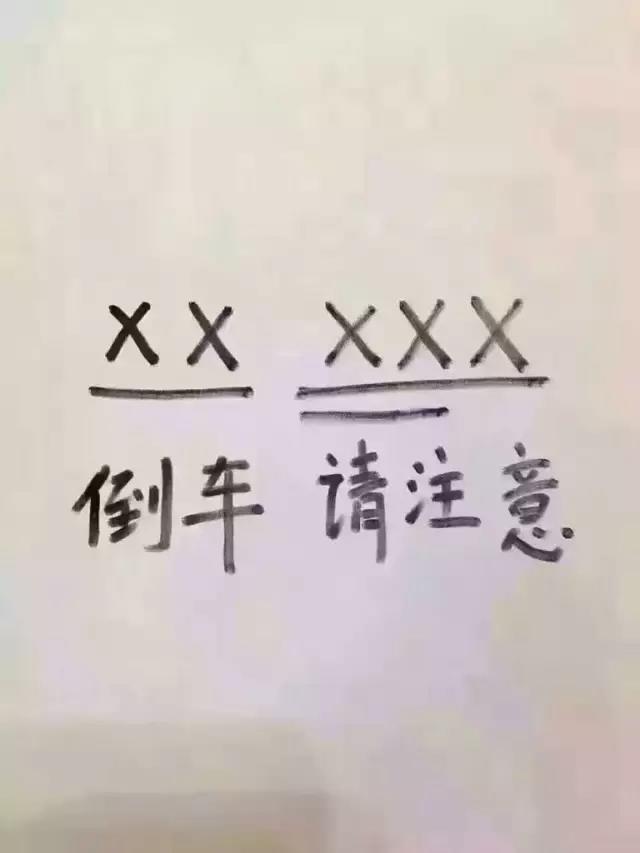 XX XXX
倒车 请注意